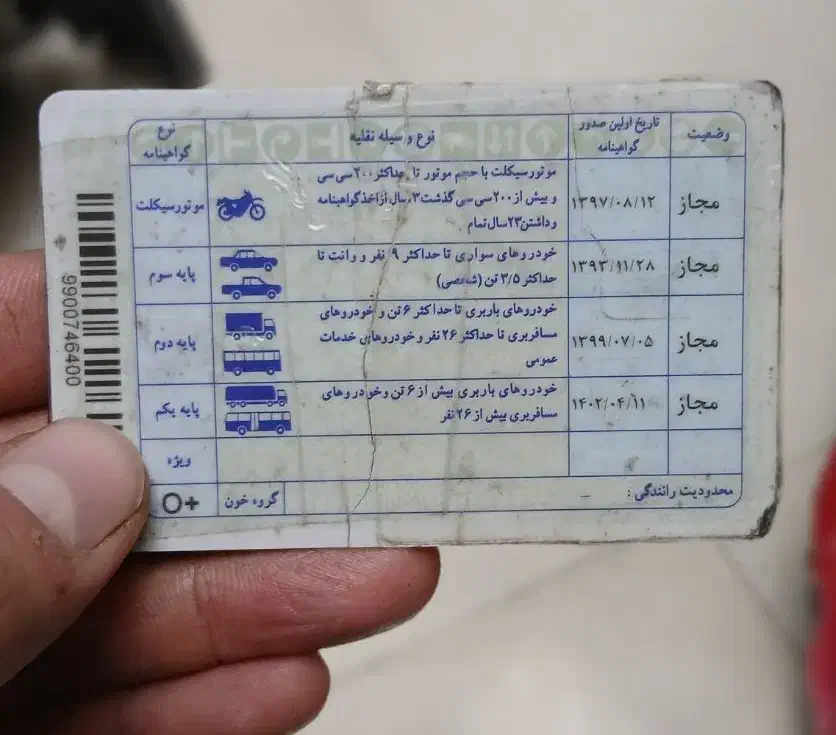 وضعیت
تاریخ اولین صدور
گواهینامه
نوع وسیله نقلیه
نوع
گواهینامه
مجاز
۱۳۹۷/۰۸/۱۲
موتورسیکلت با حجم موتور تا حداکثر ۲۰۰ سی سی
و بیش از ۲۰۰ سی سی گذشت ۳ سال از اخذ گواهینامه
و داشتن ۲۳ سال تمام
موتورسیکلت
مجاز
۱۳۹۳/۱۱/۲۸
خودروهای سواری تا حداکثر ۹ نفر و وانت تا
حداکثر ۳/۵ تن (شخصی)
پایه سوم
مجاز
۱۳۹۹/۰۷/۰۵
خودروهای باربری تا حداکثر ۶ تن و خودروهای
مسافربری تا حداکثر ۲۶ نفر و خودروهای خدمات
عمومی
پایه دوم
مجاز
۱۴۰۲/۰۴/۱۱
خودروهای باربری بیش از ۶ تن و خودروهای
مسافربری بیش از ۲۶ نفر
پایه یکم
ویژه
محدودیت رانندگی : –
گروه خون
O+
9900746400